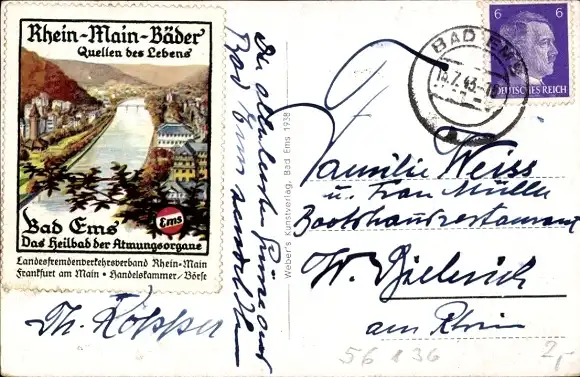 Rhein-Main-Bäder
Quellen des Lebens
Bad Ems
Ems
Das Heilbad der Atmungsorgane
Landesfremdenverkehrsverband Rhein-Main
Frankfurt am Main • Handelskammer/Börse
Die allerbesten Grüße aus
Bad Ems sendet Ihnen
Th. Köpper
Weber's Kunstverlag, Bad Ems 1938
BAD EMS
6 6
DEUTSCHES REICH
Familie Weiss
u. Frau Müller
Bootshausrestaurant
W. Biebrich
am Rhein
56136
2,-